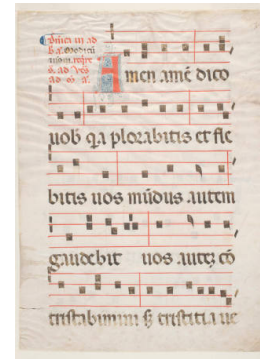 Amen amē dico
uob qa plorabitis et fle
bitis uos mūdus autem
gaudebit uos autez cō
tristabimini s; tristitia ue